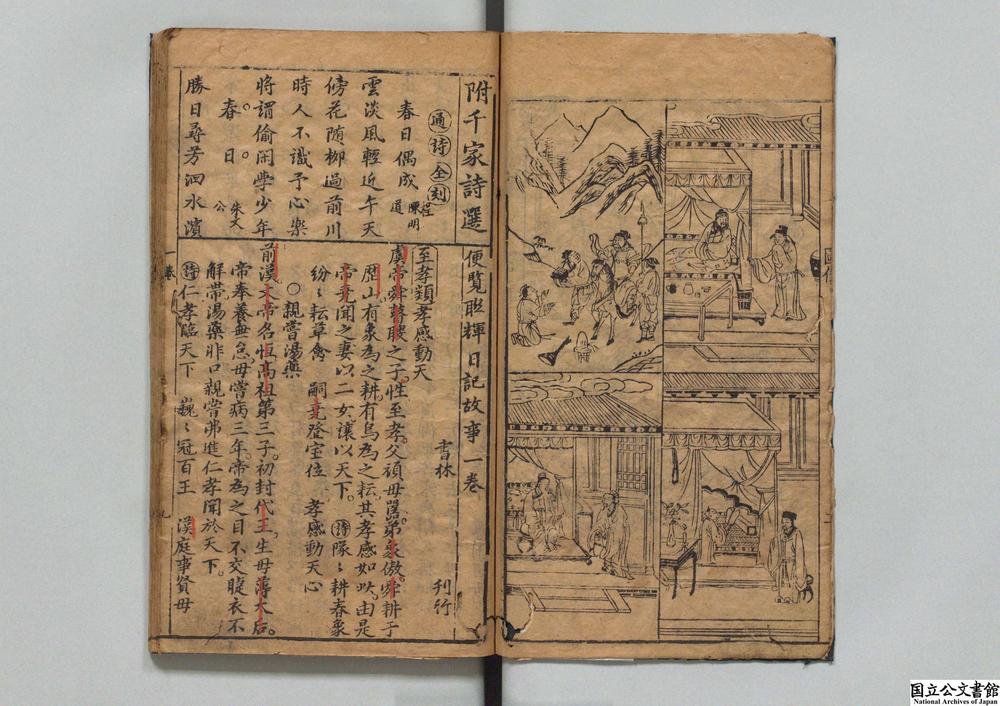 附千家詩選
通詩全刻
春日偶成 明道
雲淡風輕近午天
傍花随柳過前川
時人不識予心樂
將謂偷閑學少年
春日 朱文公
勝日尋芳泗水濱
便覽聮輝日記故事一卷
書林 刊行
至孝類 孝感動天
虞帝舜瞽瞍之子。性至孝。父頑母嚚。弟象傲。舜耕于
歷山。有象為之耕。有鳥為之耘。其孝感如此。由是
帝堯聞之妻以二女。讓以天下。詩隊〻耕春象
紛〻耘草禽 嗣堯登宝位 孝感動天心
○親嘗湯藥
前漢文帝名恒。高祖第三子。初封代王。生母薄太后。
帝奉養無怠。母嘗病三年。帝為之目不交睫。衣不
解帶。湯藥非口親嘗弗進。仁孝聞於天下。
詩仁孝臨天下 巍〻冠百王 漢庭事賢母
卷
国立公文書館
National Archives of Japan